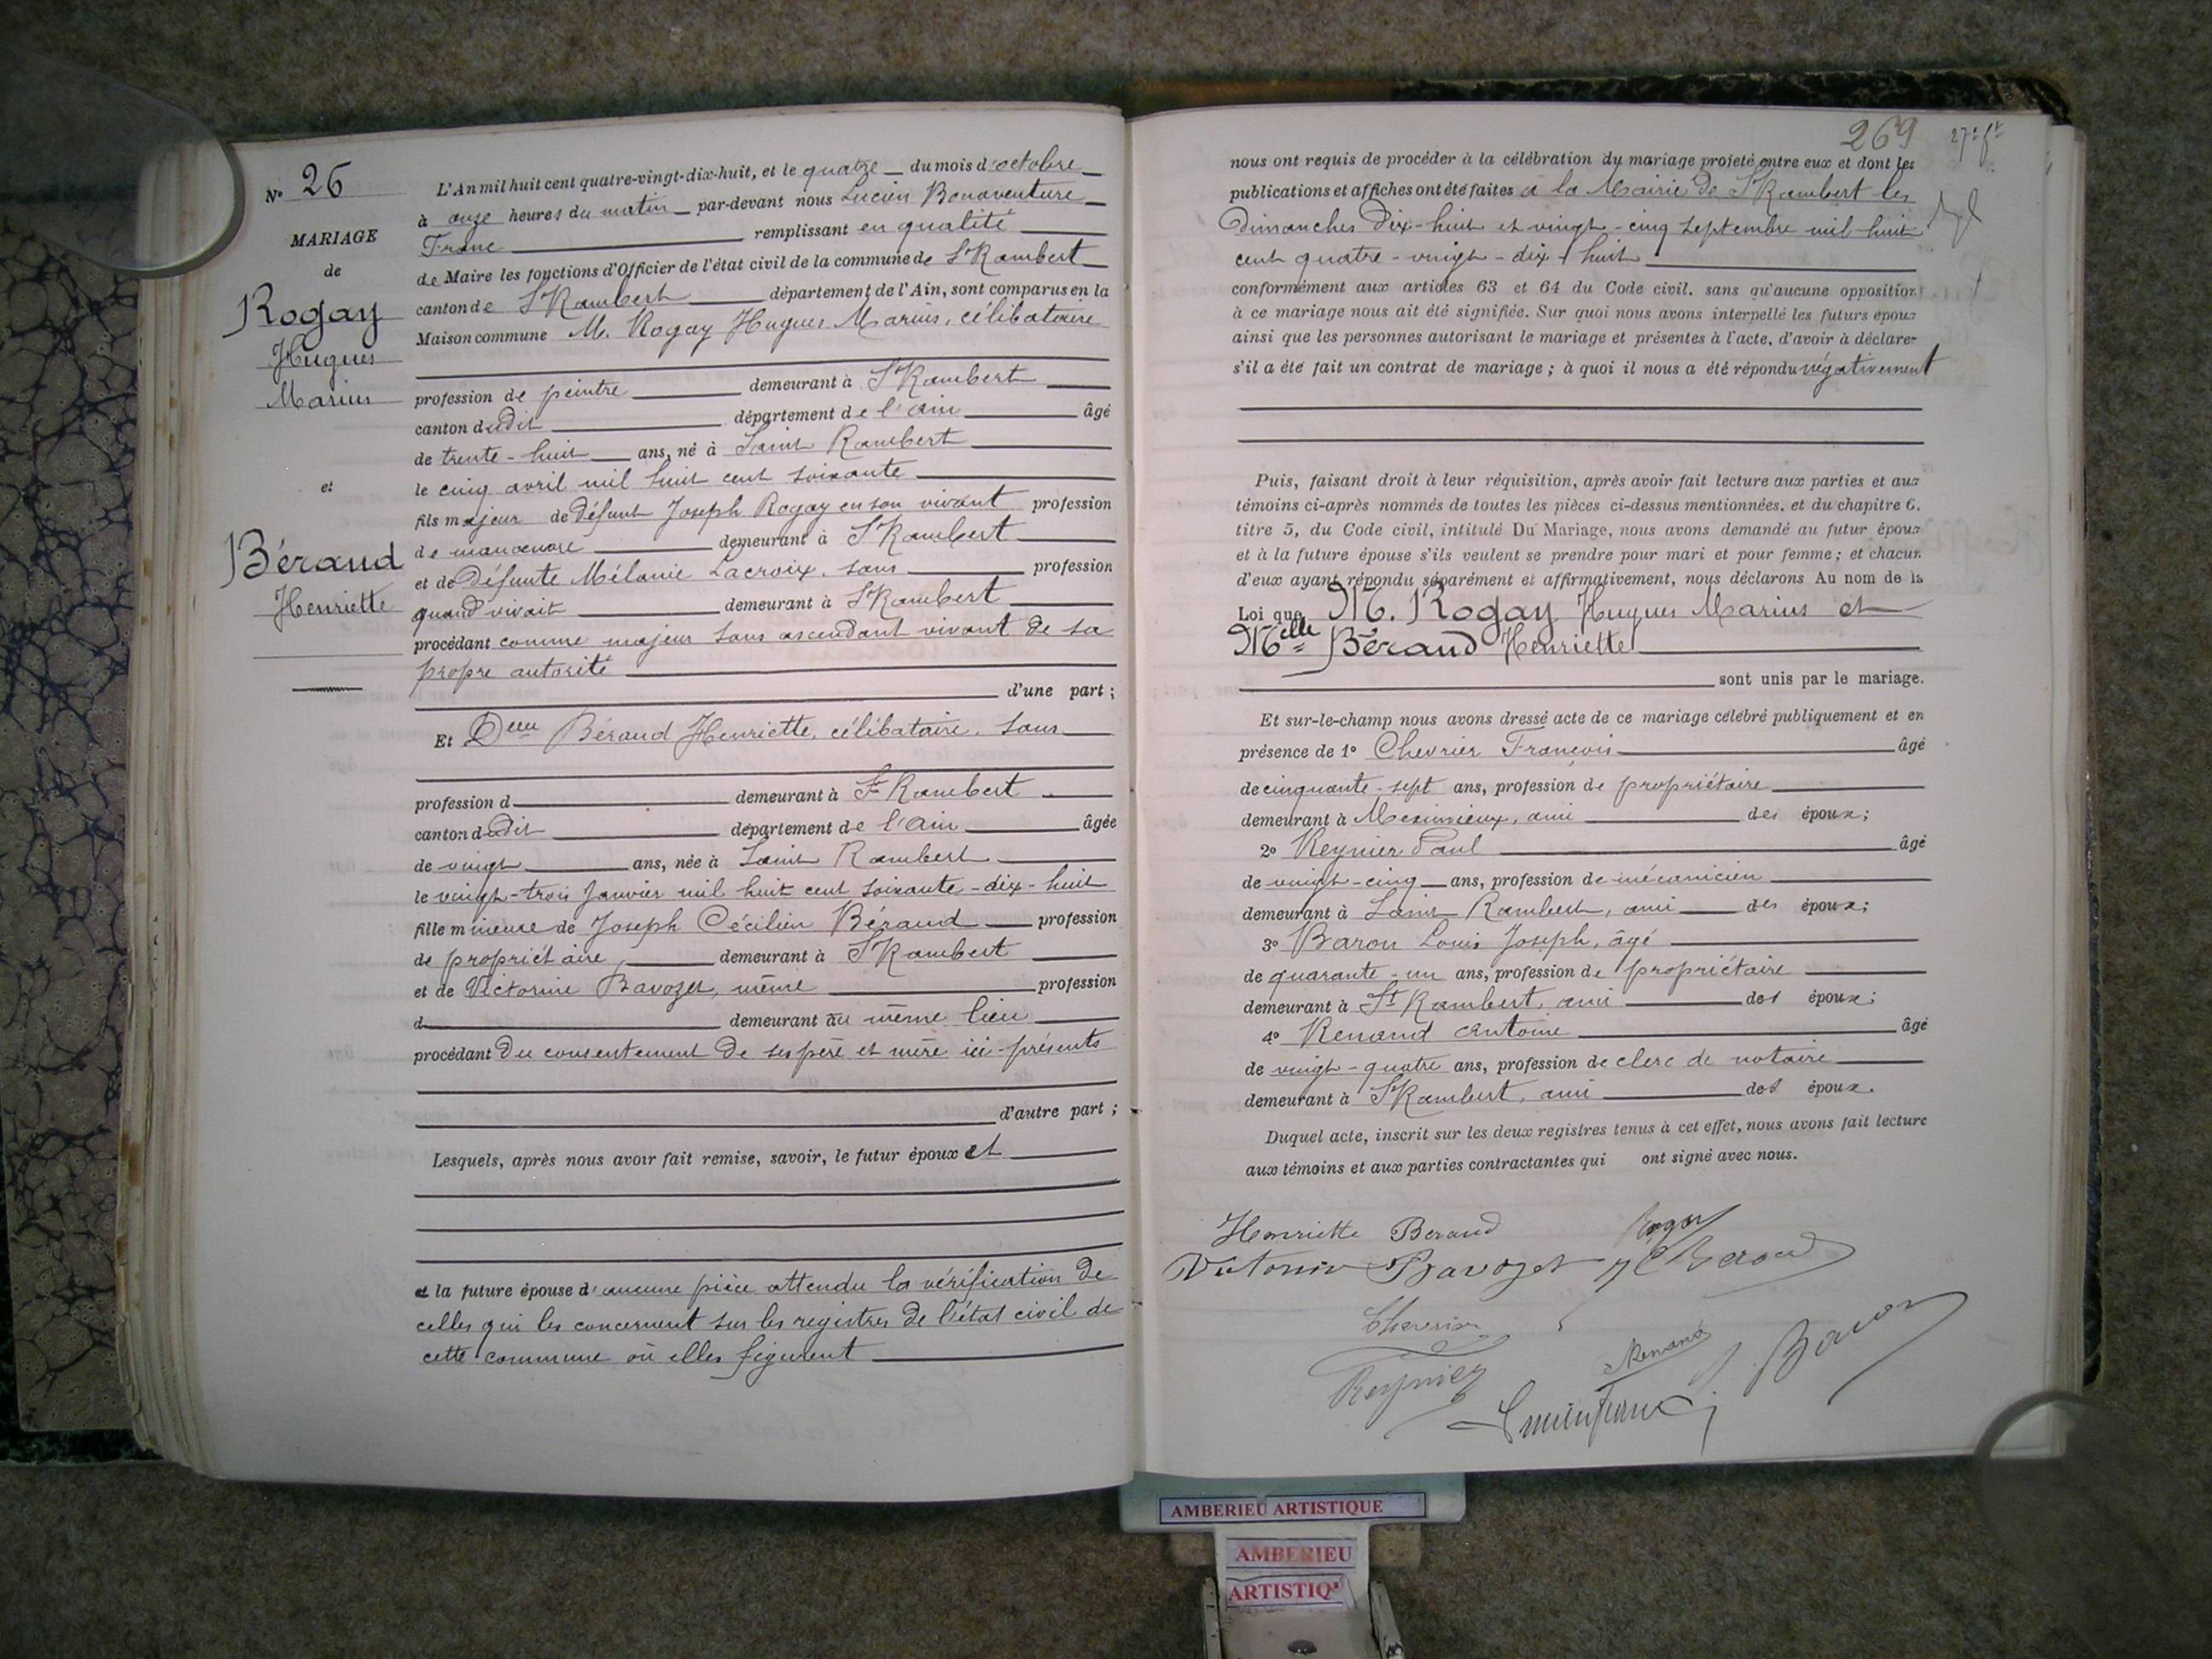 Nº 26
MARIAGE
de
Rogay
Hugues
Marius
et
Béraud
Henriette
L'An mil huit cent quatre-vingt-dix-huit, et le quatre du mois d'octobre
à onze heures du matin par-devant nous Lucien Bonaventure
Franc remplissant en qualité
de Maire les fonctions d'Officier de l'état civil de la commune de St Rambert
canton de St Rambert département de l'Ain, sont comparus en la
Maison commune M. Rogay Hugues Marius, célibataire
profession de peintre demeurant à St Rambert
canton dudit département de l'ain âgé
de trente-huit ans, né à Saint Rambert
le cinq avril mil huit cent soixante
fils majeur de défunt Joseph Rogay en son vivant profession
de manœuvre demeurant à St Rambert
et de défunte Mélanie Lacroix, sans profession
quand vivait demeurant à St Rambert
procédant comme majeur sans ascendant vivant de sa
propre autorité
d'une part ;
Et Delle Béraud Henriette, célibataire, sans
profession d demeurant à St Rambert
canton dudit département de l'ain âgée
de vingt ans, née à Saint Rambert
le vingt-trois Janvier mil huit cent soixante-dix-huit
fille mineure de Joseph Cécilien Béraud profession
de propriétaire, demeurant à St Rambert
et de Victorine Bavozet, même profession
d demeurant au même lieu
procédant du consentement de ses père et mère ici-présents
d'autre part ;
Lesquels, après nous avoir fait remise, savoir, le futur époux et
et la future épouse d'aucune pièce attendu la vérification de
celles qui les concernent sur les registres de l'état civil de
cette commune où elles figurent
269
nous ont requis de procéder à la célébration du mariage projeté entre eux et dont les
publications et affiches ont été faites à la Mairie de St Rambert les
Dimanches Dix-huit et vingt-cinq septembre mil huit
cent quatre-vingt-dix-huit
conformément aux articles 63 et 64 du Code civil. sans qu'aucune opposition
à ce mariage nous ait été signifiée. Sur quoi nous avons interpellé les futurs époux
ainsi que les personnes autorisant le mariage et présentes à l'acte, d'avoir à déclarer
s'il a été fait un contrat de mariage ; à quoi il nous a été répondu négativement
Puis, faisant droit à leur réquisition, après avoir fait lecture aux parties et aux
témoins ci-après nommés de toutes les pièces ci-dessus mentionnées, et du chapitre 6.
titre 5, du Code civil, intitulé Du Mariage, nous avons demandé au futur époux
et à la future épouse s'ils veulent se prendre pour mari et pour femme ; et chacun
d'eux ayant répondu séparément et affirmativement, nous déclarons Au nom de la
Loi que M. Rogay Hugues Marius et
Melle Béraud Henriette
sont unis par le mariage.
Et sur-le-champ nous avons dressé acte de ce mariage célébré publiquement et en
présence de 1º Chevrier François âgé
de cinquante-sept ans, profession de propriétaire
demeurant à Meximieux, ami des époux ;
2º Reynier Paul âgé
de vingt-cinq ans, profession de mécanicien
demeurant à Saint Rambert, ami des époux ;
3º Baron Louis Joseph, âgé
de quarante-un ans, profession de propriétaire
demeurant à St Rambert, ami des époux ;
4º Renand Antoine âgé
de vingt-quatre ans, profession de clerc de notaire
demeurant à St Rambert, ami des époux.
Duquel acte, inscrit sur les deux registres tenus à cet effet, nous avons fait lecture
aux témoins et aux parties contractantes qui ont signé avec nous.
Henriette Beraud Rogay
Bavozet
Chevrier
Renand
Baron
Reynier
AMBERIEU ARTISTIQUE
AMBERIEU
ARTISTIQ